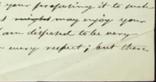 your prospering it to such
might may enjoy your
are disposed to be very
every respect; but these